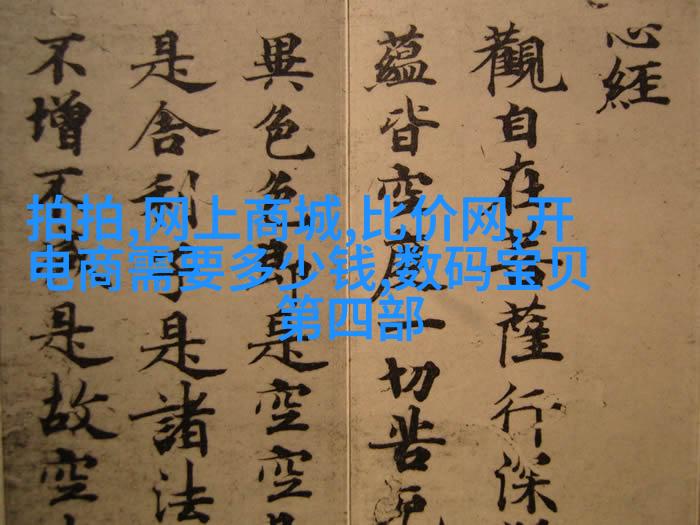 心經
觀自在菩薩行深
蘊皆空度一切苦厄
異色色即是空空
是舍利子是諸法
不增不是故空
拍拍,网上商城,比价网,开
电商需要多少钱,数码宝贝
第四部